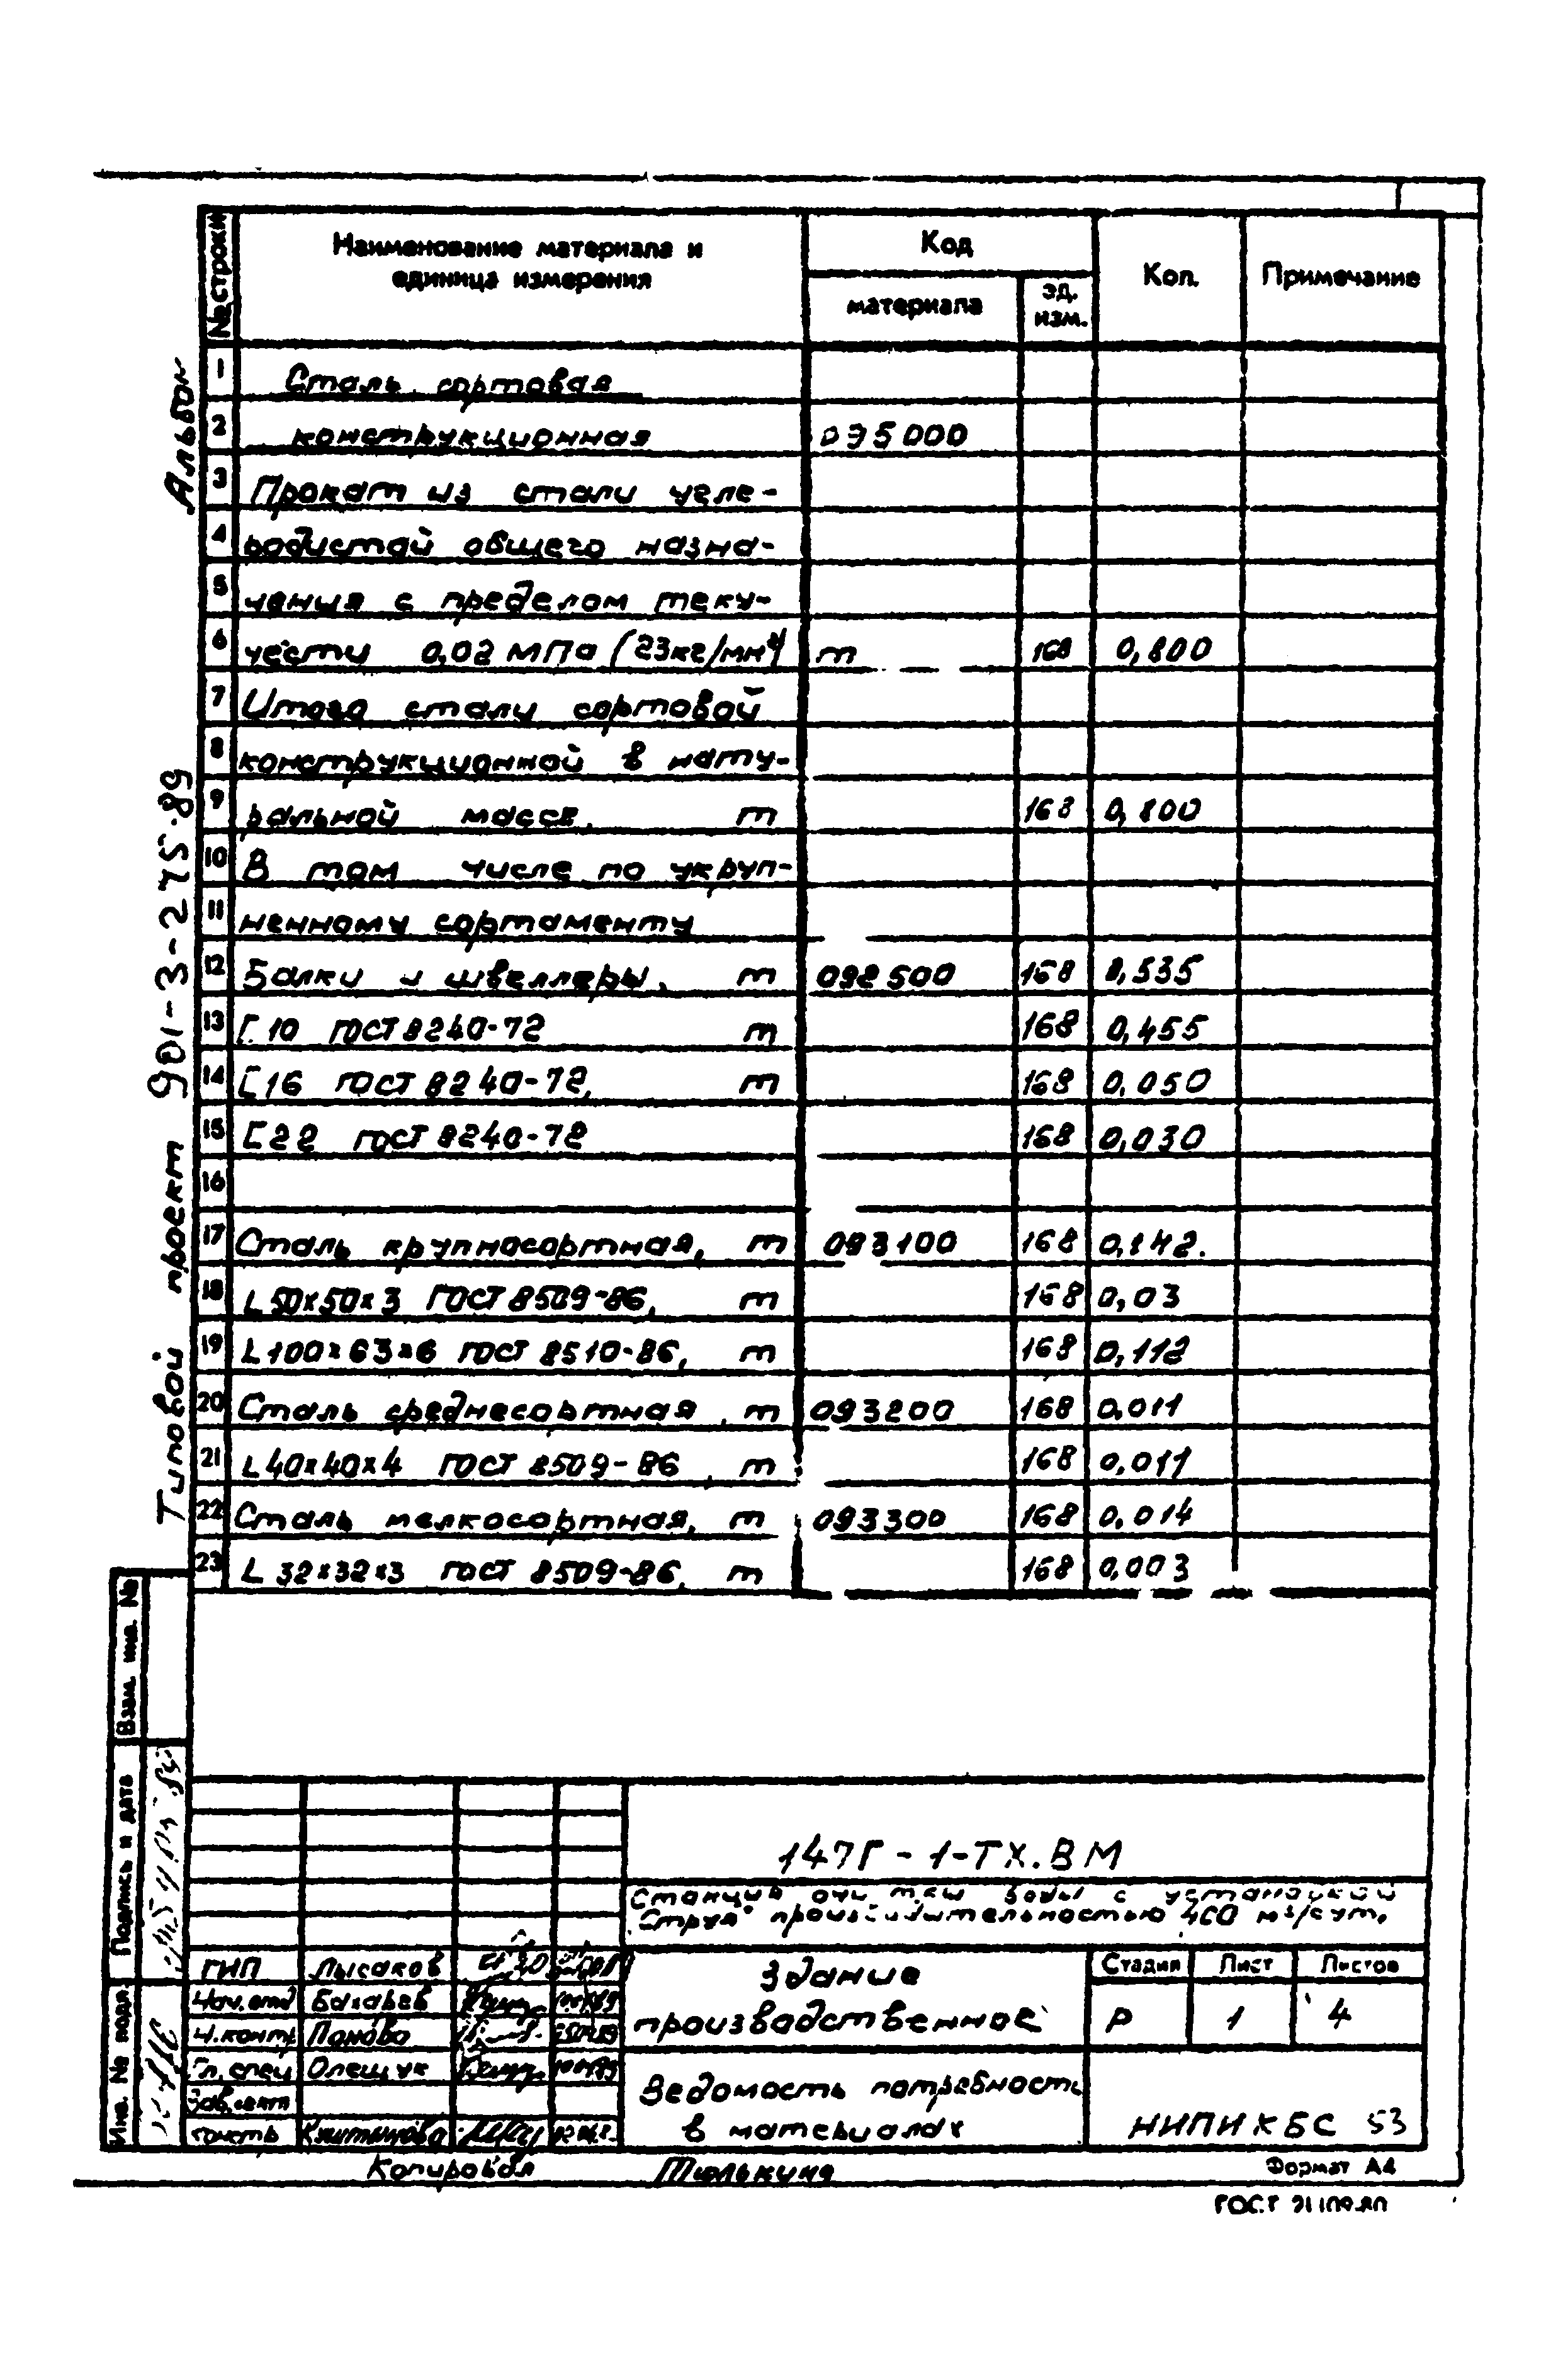 № строки
Наименование материала и
единица измерения
Код
материала
ед.
изм.
Кол.
Примечание
1 Сталь сортовая
2 конструкционная 095000
3 Прокат из стали угле-
4 родистой общего назна-
5 чения с пределом теку-
6 чести 0,02 МПа (23кг/мм²) т 168 0,800
7 Итого стали сортовой
8 конструкционной в нату-
9 ральной массе, т 168 0,800
10 В том числе по укруп-
11 ненному сортаменту
12 Балки и швеллеры, т 092500 168 0,535
13 [10 ГОСТ 8240-72 т 168 0,455
14 [16 ГОСТ 8240-72, т 168 0,050
15 [22 ГОСТ 8240-72 168 0,030
16
17 Сталь крупносортная, т 093100 168 0,142.
18 L50×50×3 ГОСТ 8509-86, т 168 0,03
19 L100×63×6 ГОСТ 8510-86, т 168 0,112
20 Сталь среднесортная, т 093200 168 0,011
21 L40×40×4 ГОСТ 8509-86, т 168 0,011
22 Сталь мелкосортная, т 093300 168 0,014
23 L 32×32×3 ГОСТ 8509-86, т 168 0,003
Типовой проект 901-3-275.89 Альбом
Взам. инв. №
Подпись и дата
Инв. № подл.
147Г-1-ТХ.ВМ
Станция очистки воды с установкой
"Струя" производительностью 400 м³/сут.
ГИП Лысаков
Нач.отд Бахарев
Н.контр Панова
Гл.спец Олещук
Здание
производственное
Стадия Лист Листов
Р 1 4
Ведомость потребности
в материалах
НИПИКБС 53
Копировал Тюлькина
Формат А4
ГОСТ 21.109-80